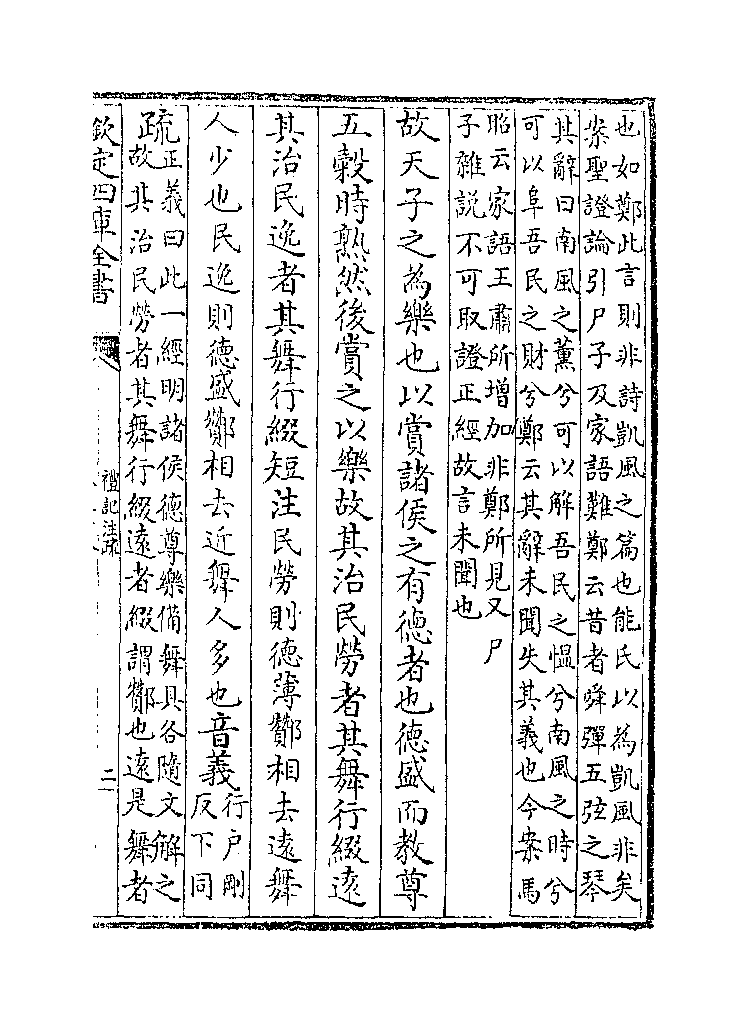 也如鄭此言則非詩凱風之篇也能氏以為凱風非矣
案聖證論引尸子及家語難鄭云昔者舜彈五弦之琴
其辭曰南風之薰兮可以解吾民之慍兮南風之時兮
可以阜吾民之財兮鄭云其辭未聞失其義也今案馬
昭云家語王肅所增加非鄭所見又尸
子雜説不可取證正經故言未聞也
故天子之為樂也以賞諸侯之有德者也德盛而教尊
五糓時熟然後賞之以樂故其治民勞者其舞行綴逺
其治民逸者其舞行綴短注民勞則德薄酇相去逺舞
人少也民逸則德盛酇相去近舞人多也音義
行户剛
反下同
疏
正義曰此一經明諸侯德尊樂備舞具各隨文解之
故其治民勞者其舞行綴逺者綴謂酇也逺是舞者
欽定四庫全書
禮記注疏
二